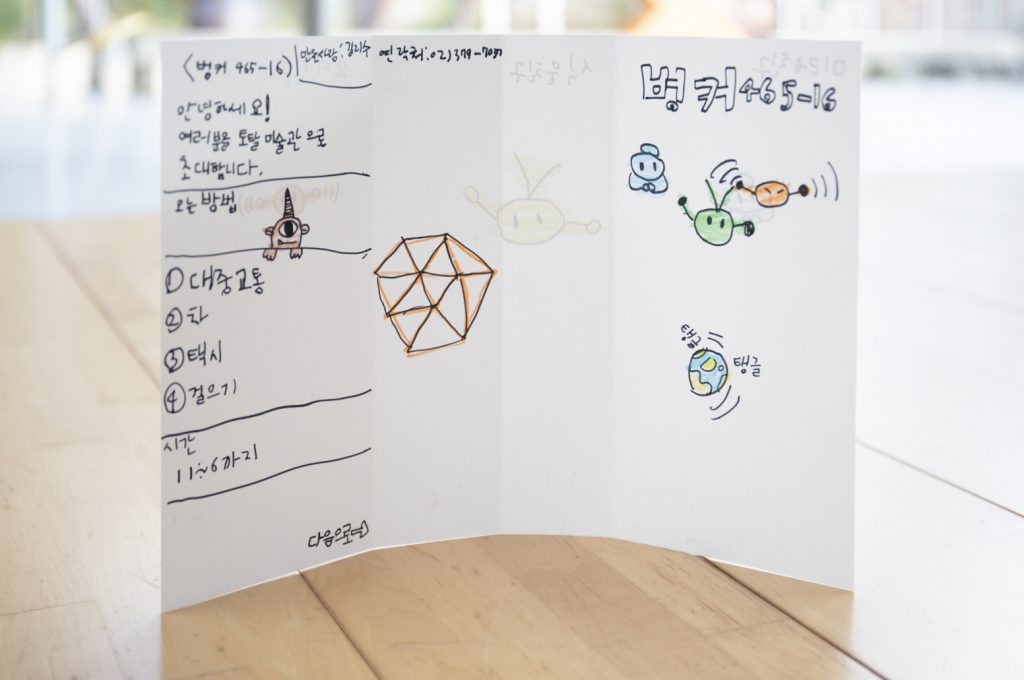 <벙커 465-16>
만든사람: 김리수
안녕하세요!
여러분을 토탈 미술관으로
초대합니다.
오는 방법
① 대중교통
② 차
③ 택시
④ 걸으기
시간
11~6까지
다음으로⇒
연락처: 02)379-7037
벙커465-16
탱글
탱글
식물친구
미래친구